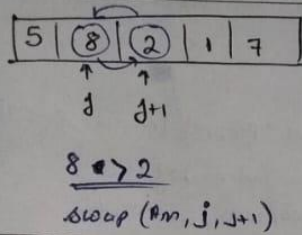 5 | 8 | 2 | 1 | 7
j j+1
8 > 2
swap (Arr, j, j+1)